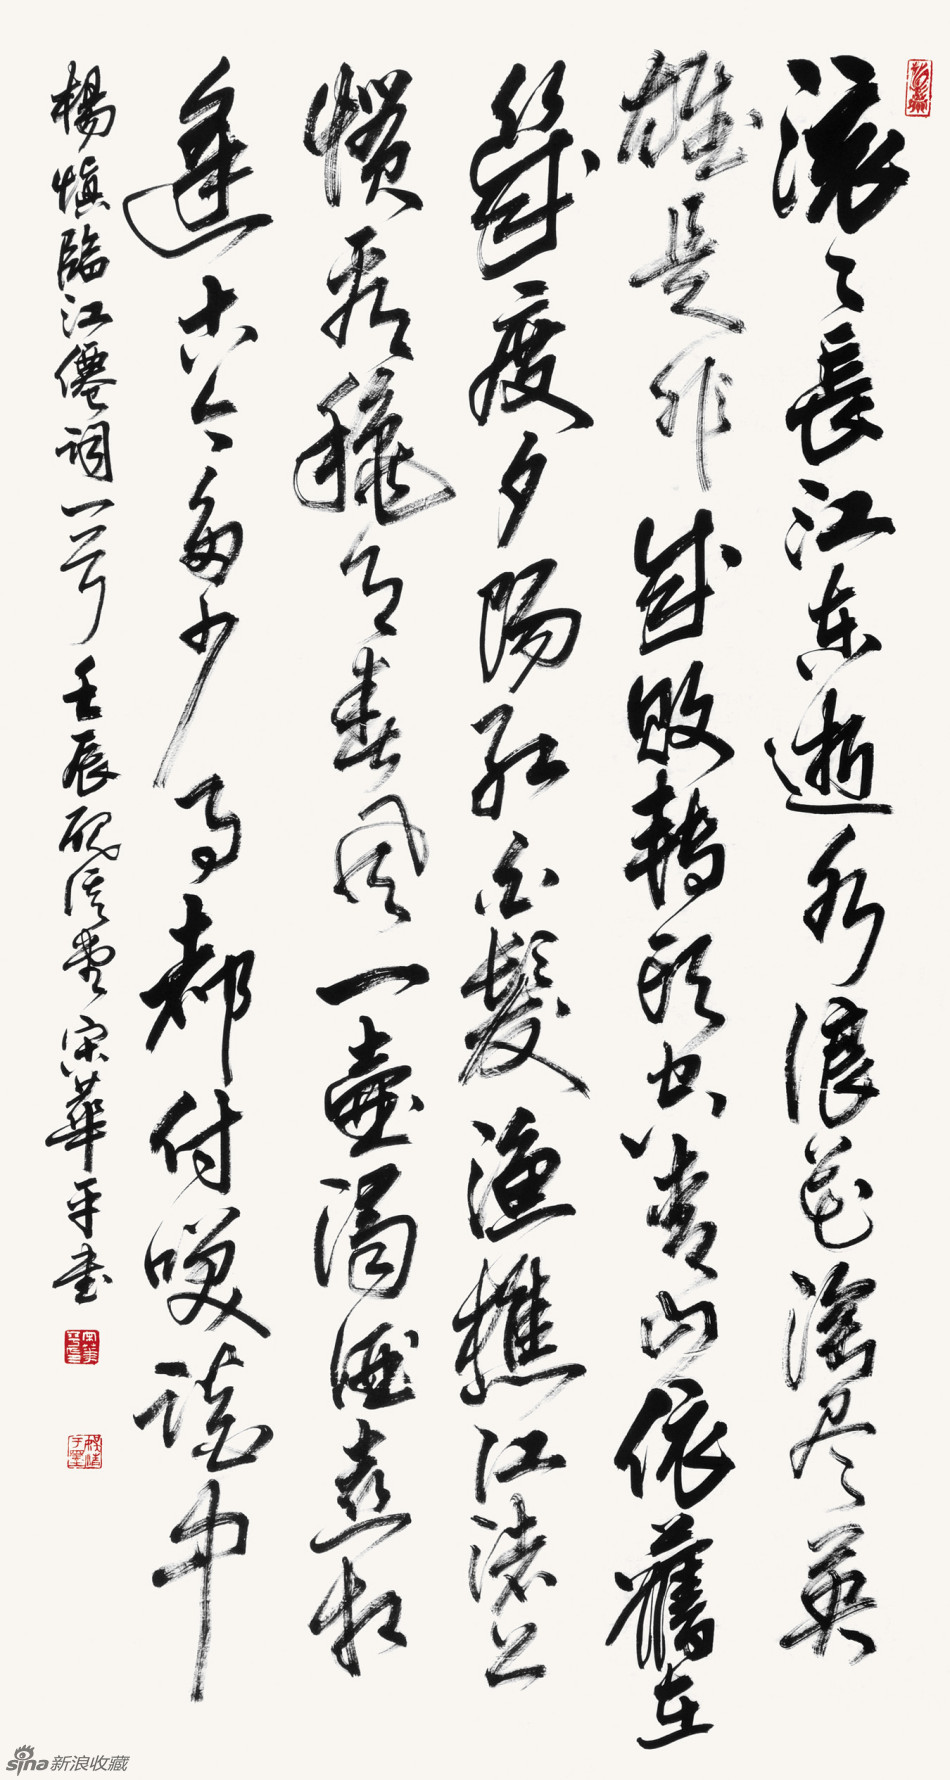 滚々長江东逝水浪花淘尽英
雄是非成败轉头空青山依舊在
幾度夕陽红白髮渔樵江渚上
惯看穐月春风一壶濁酒喜相
逢古今多少事都付咲谈中
楊慎臨江僊词一首 壬辰 宋華平书
sina新浪收藏